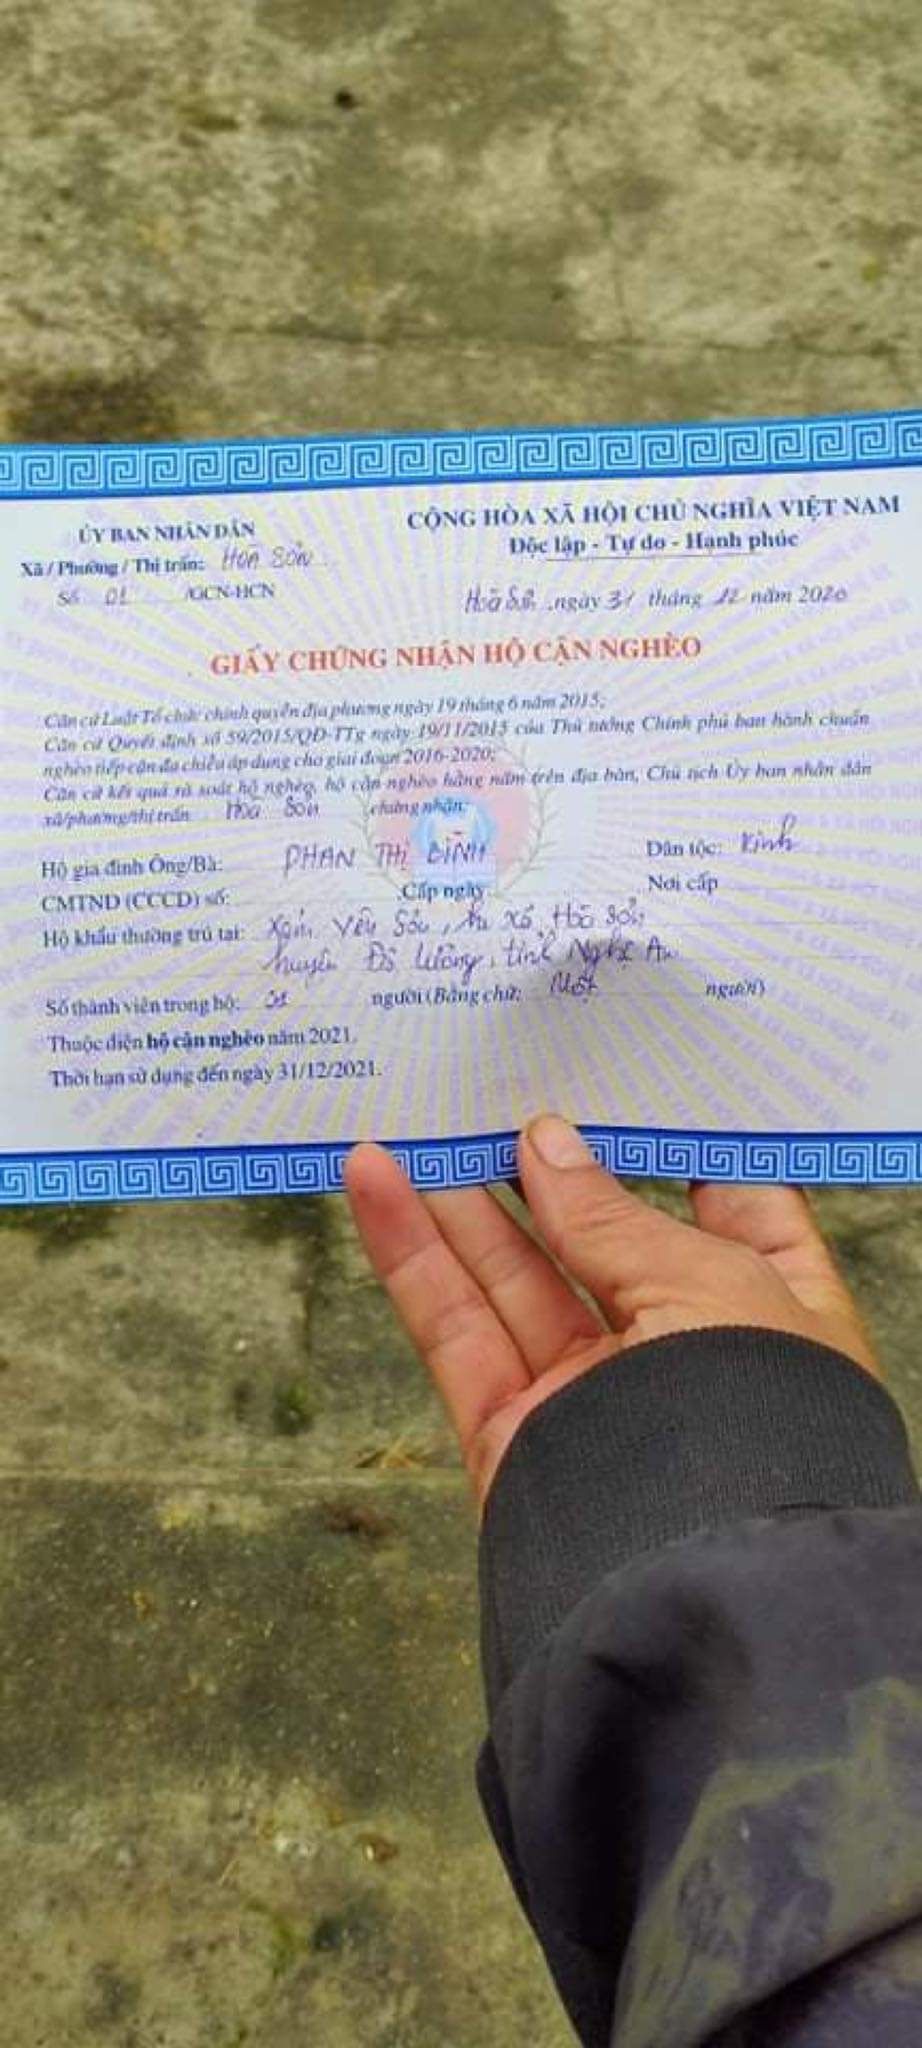 ỦY BAN NHÂN DÂN
CỘNG HÒA XÃ HỘI CHỦ NGHĨA VIỆT NAM
Xã / Phường / Thị trấn: HOA SƠN
Độc lập - Tự do - Hạnh phúc
Số 01 /GCN-HCN
Hoà Sơn, ngày 31 tháng 12 năm 2020
GIẤY CHỨNG NHẬN HỘ CẬN NGHÈO
Căn cứ Luật Tổ chức chính quyền địa phương ngày 19 tháng 6 năm 2015;
Căn cứ Quyết định số 59/2015/QĐ-TTg ngày 19/11/2015 của Thủ tướng Chính phủ ban hành chuẩn
nghèo tiếp cận đa chiều áp dụng cho giai đoạn 2016-2020;
Căn cứ kết quả rà soát hộ nghèo, hộ cận nghèo hằng năm trên địa bàn, Chủ tịch Ủy ban nhân dân
xã/phường/thị trấn Hoà Sơn chứng nhận:
Hộ gia đình Ông/Bà: PHAN THỊ Dân tộc: Kinh
CMTND (CCCD) số: Cấp ngày Nơi cấp
Hộ khẩu thường trú tại: Xóm Yên Sơn, xã Hoà Sơn
huyện Đô Lương, tỉnh Nghệ An
Số thành viên trong hộ: 01 người (Bằng chữ: Một người)
Thuộc diện hộ cận nghèo năm 2021.
Thời hạn sử dụng đến ngày 31/12/2021.